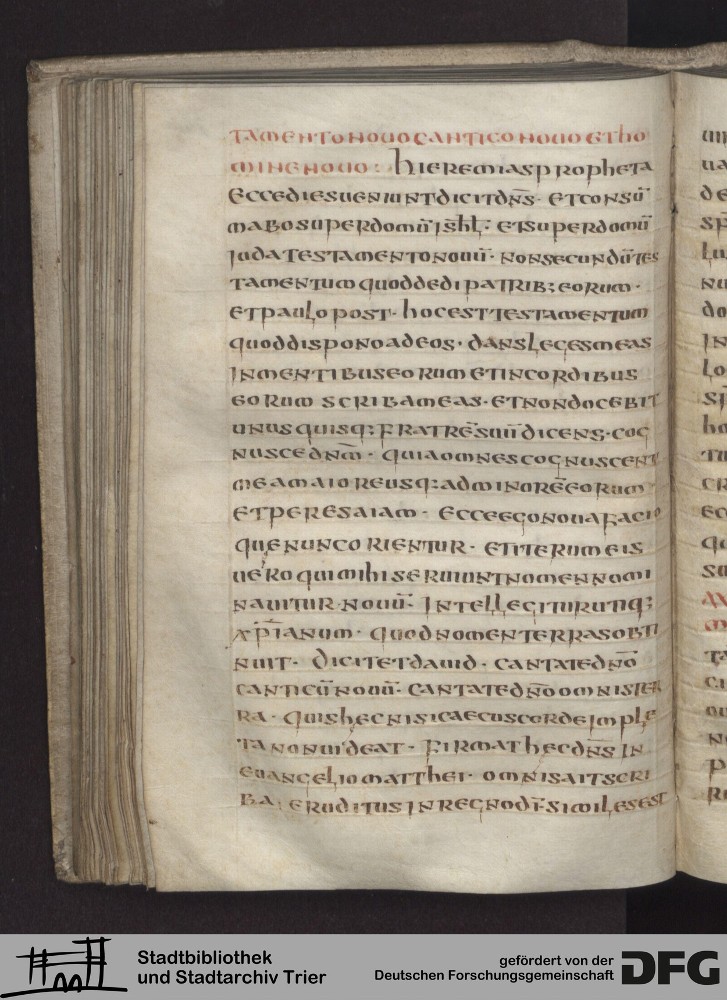 TAMENTO NOUO CANTICO NOUO ET hO
MINE NOUO: hIEREMIAS PROPhETA
ECCE DIES UENIUNT DICIT DN̄S· ET CONSŪ
MABO SUPER DOMŪ ISR̄HL· ET SUPER DOMŪ
IUDA TESTAMENTO NOUŪ· NON SECUNDŪ TES
TAMENTUM QUOD DEDI PATRIB; EORUM·
ET PAULO POST· hOC EST TESTAMENTUM
QUOD DISPONO AD EOS· DANS LEGES MEAS
IN MENTIBUS EORUM ET IN CORDIBUS
EORUM SCRIBAM EAS· ET NON DOCEBIT
UNUS QUISQ; FRATRĒ SUŪ DICENS· COG
NUSCE DN̄M· QUIA OMNES COGNUSCENT
ME A MAIORE USQ; AD MINORĒ EORUM
ET PER ESAIAM· ECCE EGO NOUA FACIO
QUE NUNC ORIENTUR· ET ITERUM EIS
UERO QUI MIhI SERUIUNT NOMEN NOMI
NAUITUR NOUŪ· INTELLEGITUR UTIQ;
XP̄IANUM· QUOD NOMEN TERRAS OBTI
NUIT· DICIT ET DAUID· CANTATE DN̄O
CANTICŪ NOUŪ· CANTATE DN̄O OMNIS TER
RA· QUIS hEC NISI CAECUS CORDE IMPLE
TA NON UIDEAT· FIRMAT hEC DN̄S IN
EUANGELIO MATTHEI· OMNIS AIT SCRI
BA; ERUDITUS IN REGNO DĪ· SIMILES EST
Stadtbibliothek
und Stadtarchiv Trier
gefördert von der
Deutschen Forschungsgemeinschaft
DFG